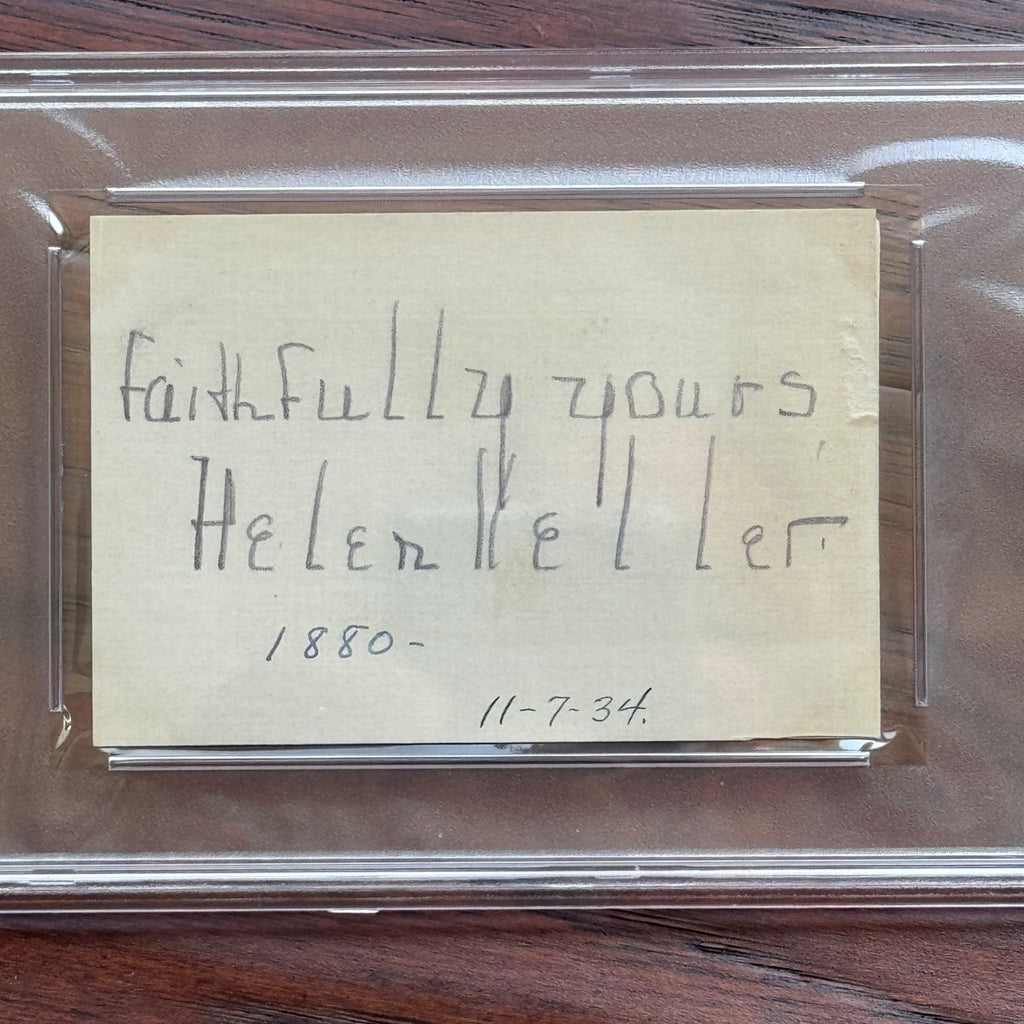 Faithfully yours,
Helen Keller
1880-
11-7-34.